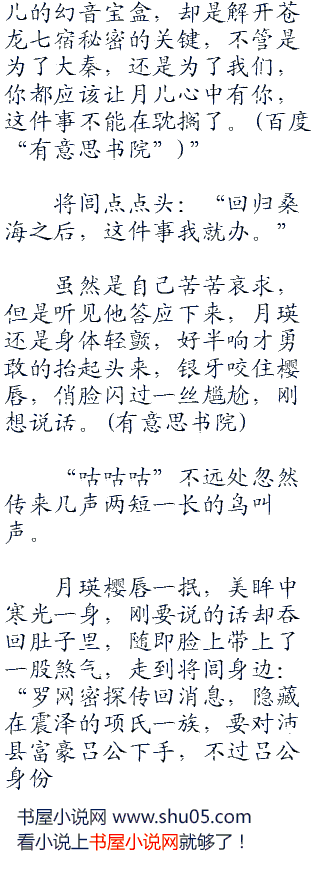 儿的幻音宝盒，却是解开苍
龙七宿秘密的关键，不管是
为了大秦，还是为了我们，
你都应该让月儿心中有你，
这件事不能在耽搁了。(百度
“有意思书院”)”
将闾点点头：“回归桑
海之后，这件事我就办。”
虽然是自己苦苦哀求，
但是听见他答应下来，月瑛
还是身体轻颤，好半响才勇
敢的抬起头来，银牙咬住樱
唇，俏脸闪过一丝尴尬，刚
想说话。(有意思书院)
“咕咕咕”不远处忽然
传来几声两短一长的鸟叫
声。
月瑛樱唇一抿，美眸中
寒光一身，刚要说的话却吞
回肚子里，随即脸上带上了
一股煞气，走到将闾身边：
“罗网密探传回消息，隐藏
在震泽的项氏一族，要对沛
县富豪吕公下手，不过吕公
身份
书屋小说网 www.shu05.com
看小说上书屋小说网就够了！